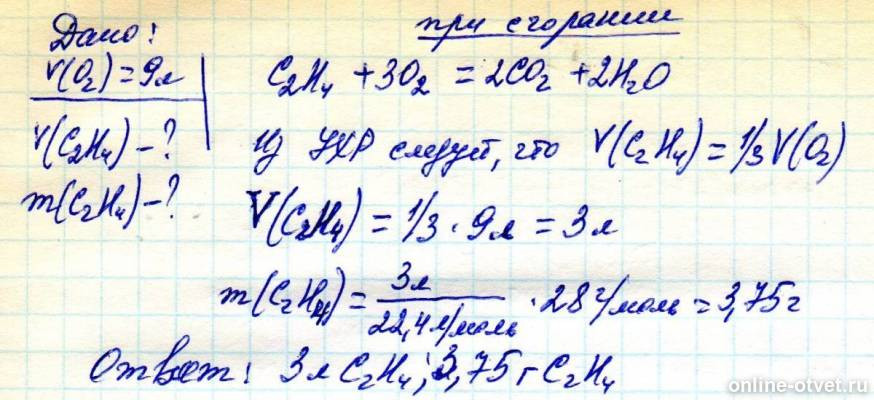 при сгорании
Дано:
V(O₂) = 9л
V(C₂H₄) - ?
m(C₂H₄) - ?
C₂H₄ + 3O₂ = 2CO₂ + 2H₂O
Из УХР следует, что V(C₂H₄) = 1/3 V(O₂)
V(C₂H₄) = 1/3 · 9л = 3л
m(C₂H₄) = 3л / 22,4 л/моль · 28 г/моль = 3,75 г
Ответ: 3л C₂H₄; 3,75 г C₂H₄
online-otvet.ru